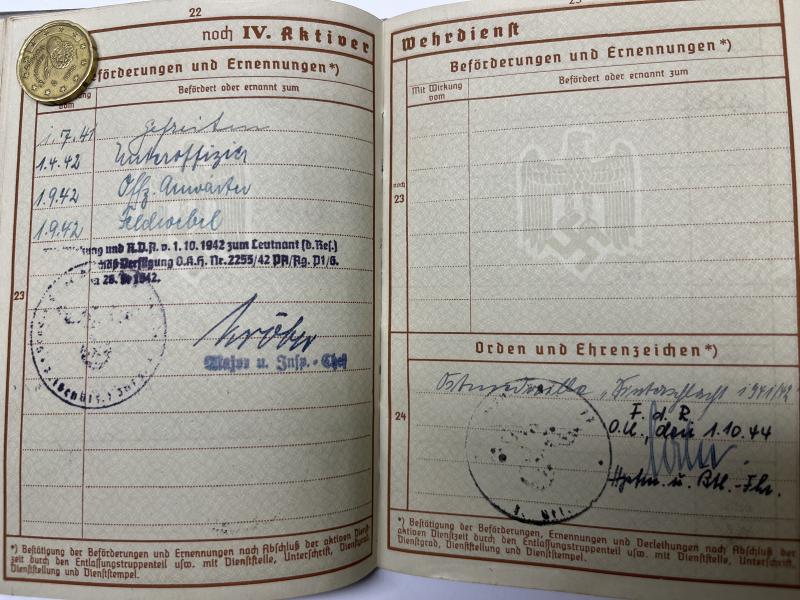 22
noch IV. Aktiver
Beförderungen und Ernennungen*)
vom
Befördert oder ernannt zum
1.7.41 Gefreiten
1.4.42 Unteroffizier
1.9.42 Offz. Anwärter
1.9.42 Feldwebel
und R.D.A. v. 1.10.1942 zum Leutnant (d.Res.)
Verfügung O.K.H. Nr. 2255/42 PA/Ag. P1/6.
1942.
23
Kröber
Major u. Insp.-Chef
*) Bestätigung der Beförderungen und Ernennungen nach Abschluß der aktiven Dienst-
zeit durch den Entlassungstruppenteil usw. mit Dienststelle, Unterschrift, Dienstgrad,
Dienststellung und Dienststempel.
23
Wehrdienst
Beförderungen und Ernennungen*)
Mit Wirkung
vom
Befördert oder ernannt zum
noch
23
Orden und Ehrenzeichen*)
Ostmedaille "Winterschlacht 1941/42
F. d. R
O.U., den 1.10.44
24
Hptm. u. Btl.-Fhr.
*) Bestätigung der Beförderungen, Ernennungen und Verleihungen nach Abschluß der
aktiven Dienstzeit durch den Entlassungstruppenteil usw. mit Dienststelle, Unterschrift,
Dienstgrad, Dienststellung und Dienststempel.